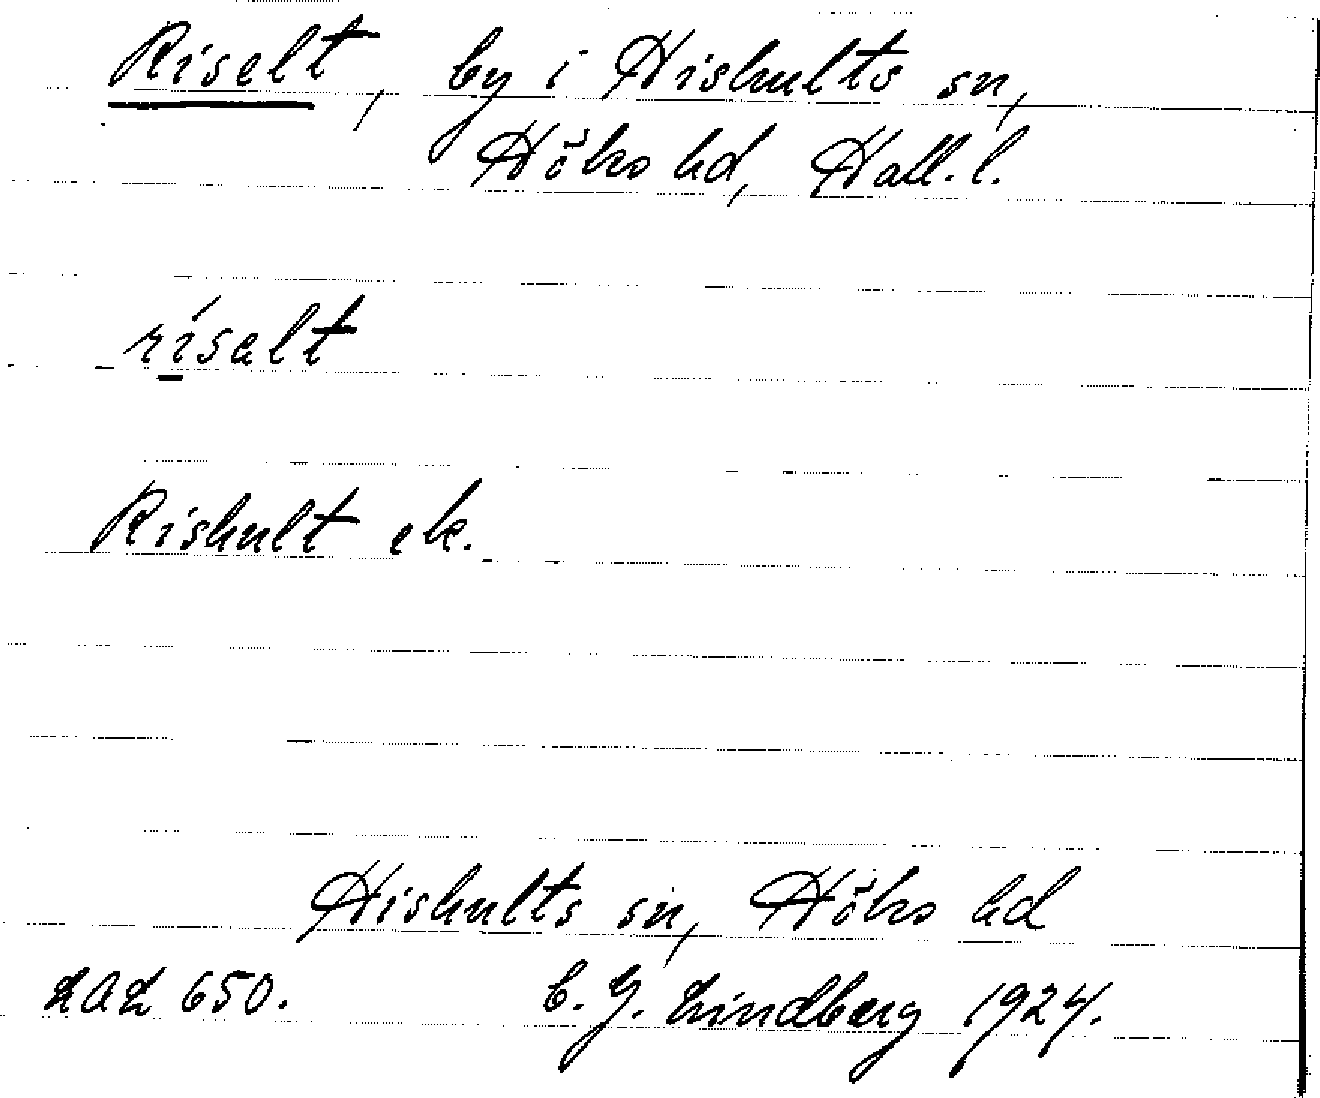 Riselt, by i Hishults sn,
Höks hd, Hall. l.
risalt
Rishult ek.
Hishults sn, Höks hd
LAL 650. C. G. Lindberg 1924.